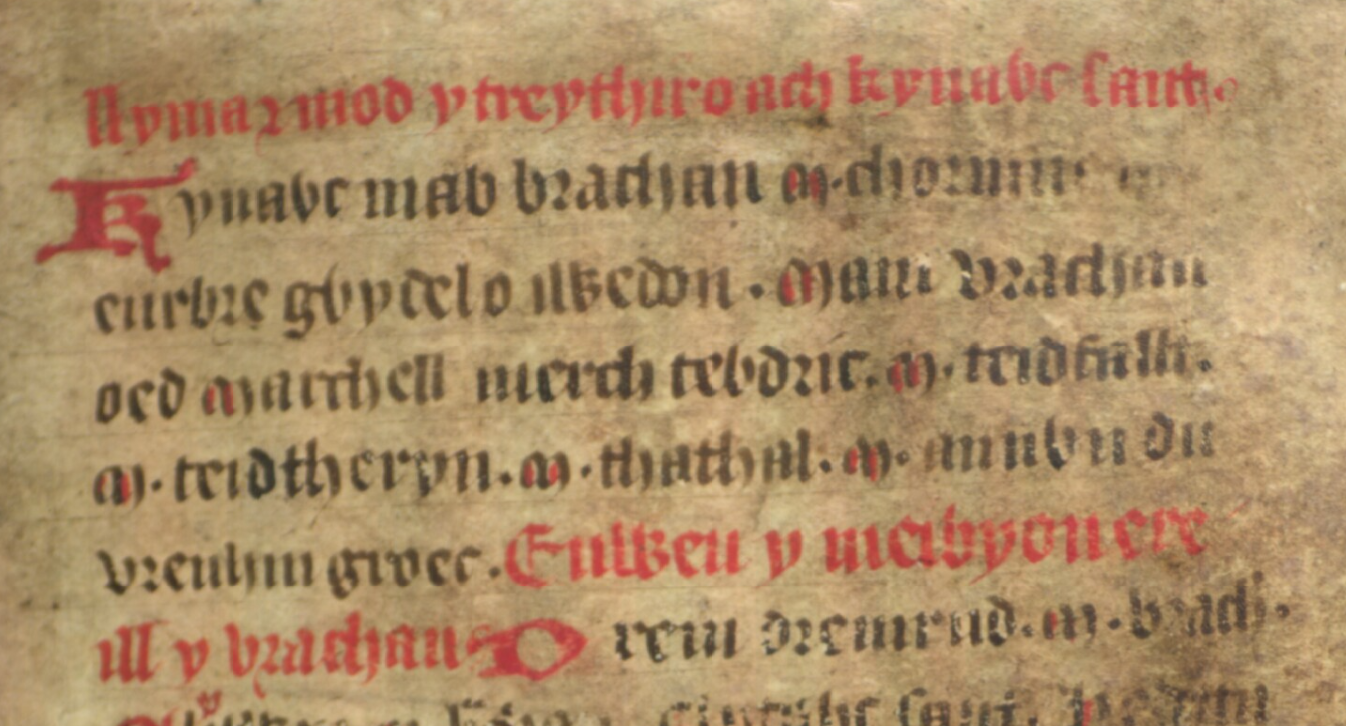 Llyma y mod y treythir o ach kynavc sant.
Kynavc mab brachan m. chormuc
eurbre gvydel o iwedon. Mam vrachan
oed marchell merch tevdric. m. teidfallt.
m. teidtheryn. m. thathal. m. annvn du
vrenhin groec. Enweu y meibyon ere
ill y vrachan Drem dremrud. m. brach.